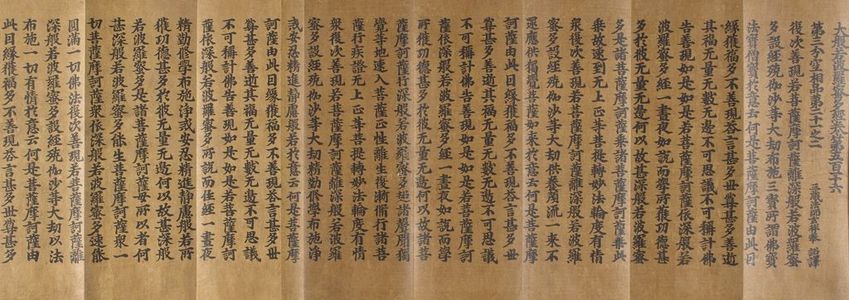 大般若波羅蜜多經卷第五百十六
第三分空相品第二十一之二 三藏法師玄奘奉 詔譯
復次善現若菩薩摩訶薩離深般若波羅蜜
多設經殑伽沙等大劫布施三寶所謂佛寶
法寶僧寶於意云何是菩薩摩訶薩由此因
緣獲福多不善現荅言甚多世尊甚多善逝
其福无量无數无邊不可思議不可稱計佛
告善現如是如是若菩薩摩訶薩依深般若
波羅蜜多經一晝夜如說而學所獲功德甚
多於彼无量无邊何以故甚深般若波羅蜜
多是諸菩薩摩訶薩乘諸菩薩摩訶薩乘此
乘故速到无上正等菩提轉妙法輪度有情
衆復次善現若菩薩摩訶薩離深般若波羅
蜜多設經殑伽沙等大劫供養預流一來不
還應供獨覺菩薩如來於意云何是菩薩摩
訶薩由此因緣獲福多不善現荅言甚多世
尊甚多善逝其福无量无數无邊不可思議
不可稱計佛告善現如是如是若菩薩摩訶
薩依深般若波羅蜜多經一晝夜如說而學
所獲功德甚多於彼无量无邊何以故諸菩
薩摩訶薩行深般若波羅蜜多超諸聲聞獨
覺等地速入菩薩正性離生復漸修行諸菩
薩行疾證无上正等菩提轉妙法輪度有情
衆復次善現若菩薩摩訶薩離深般若波羅
蜜多設經殑伽沙等大劫精勤修學布施淨
戒安忍精進靜慮般若於意云何是菩薩摩
訶薩由此因緣獲福多不善現荅言甚多世
尊甚多善逝其福无量无數无邊不可思議
不可稱計佛告善現如是如是若菩薩摩訶
薩依深般若波羅蜜多所說而住經一晝夜
精勤修學布施淨戒安忍精進靜慮般若所
獲功德甚多於彼无量无邊何以故甚深般
若波羅蜜多是諸菩薩摩訶薩母所以者何
甚深般若波羅蜜多能生菩薩摩訶薩衆一
切菩薩摩訶薩衆依深般若波羅蜜多速能
圓滿一切佛法復次善現若菩薩摩訶薩離
深般若波羅蜜多設經殑伽沙等大劫以法
布施一切有情於意云何是菩薩摩訶薩由
此因緣獲福多不善現荅言甚多世尊甚多